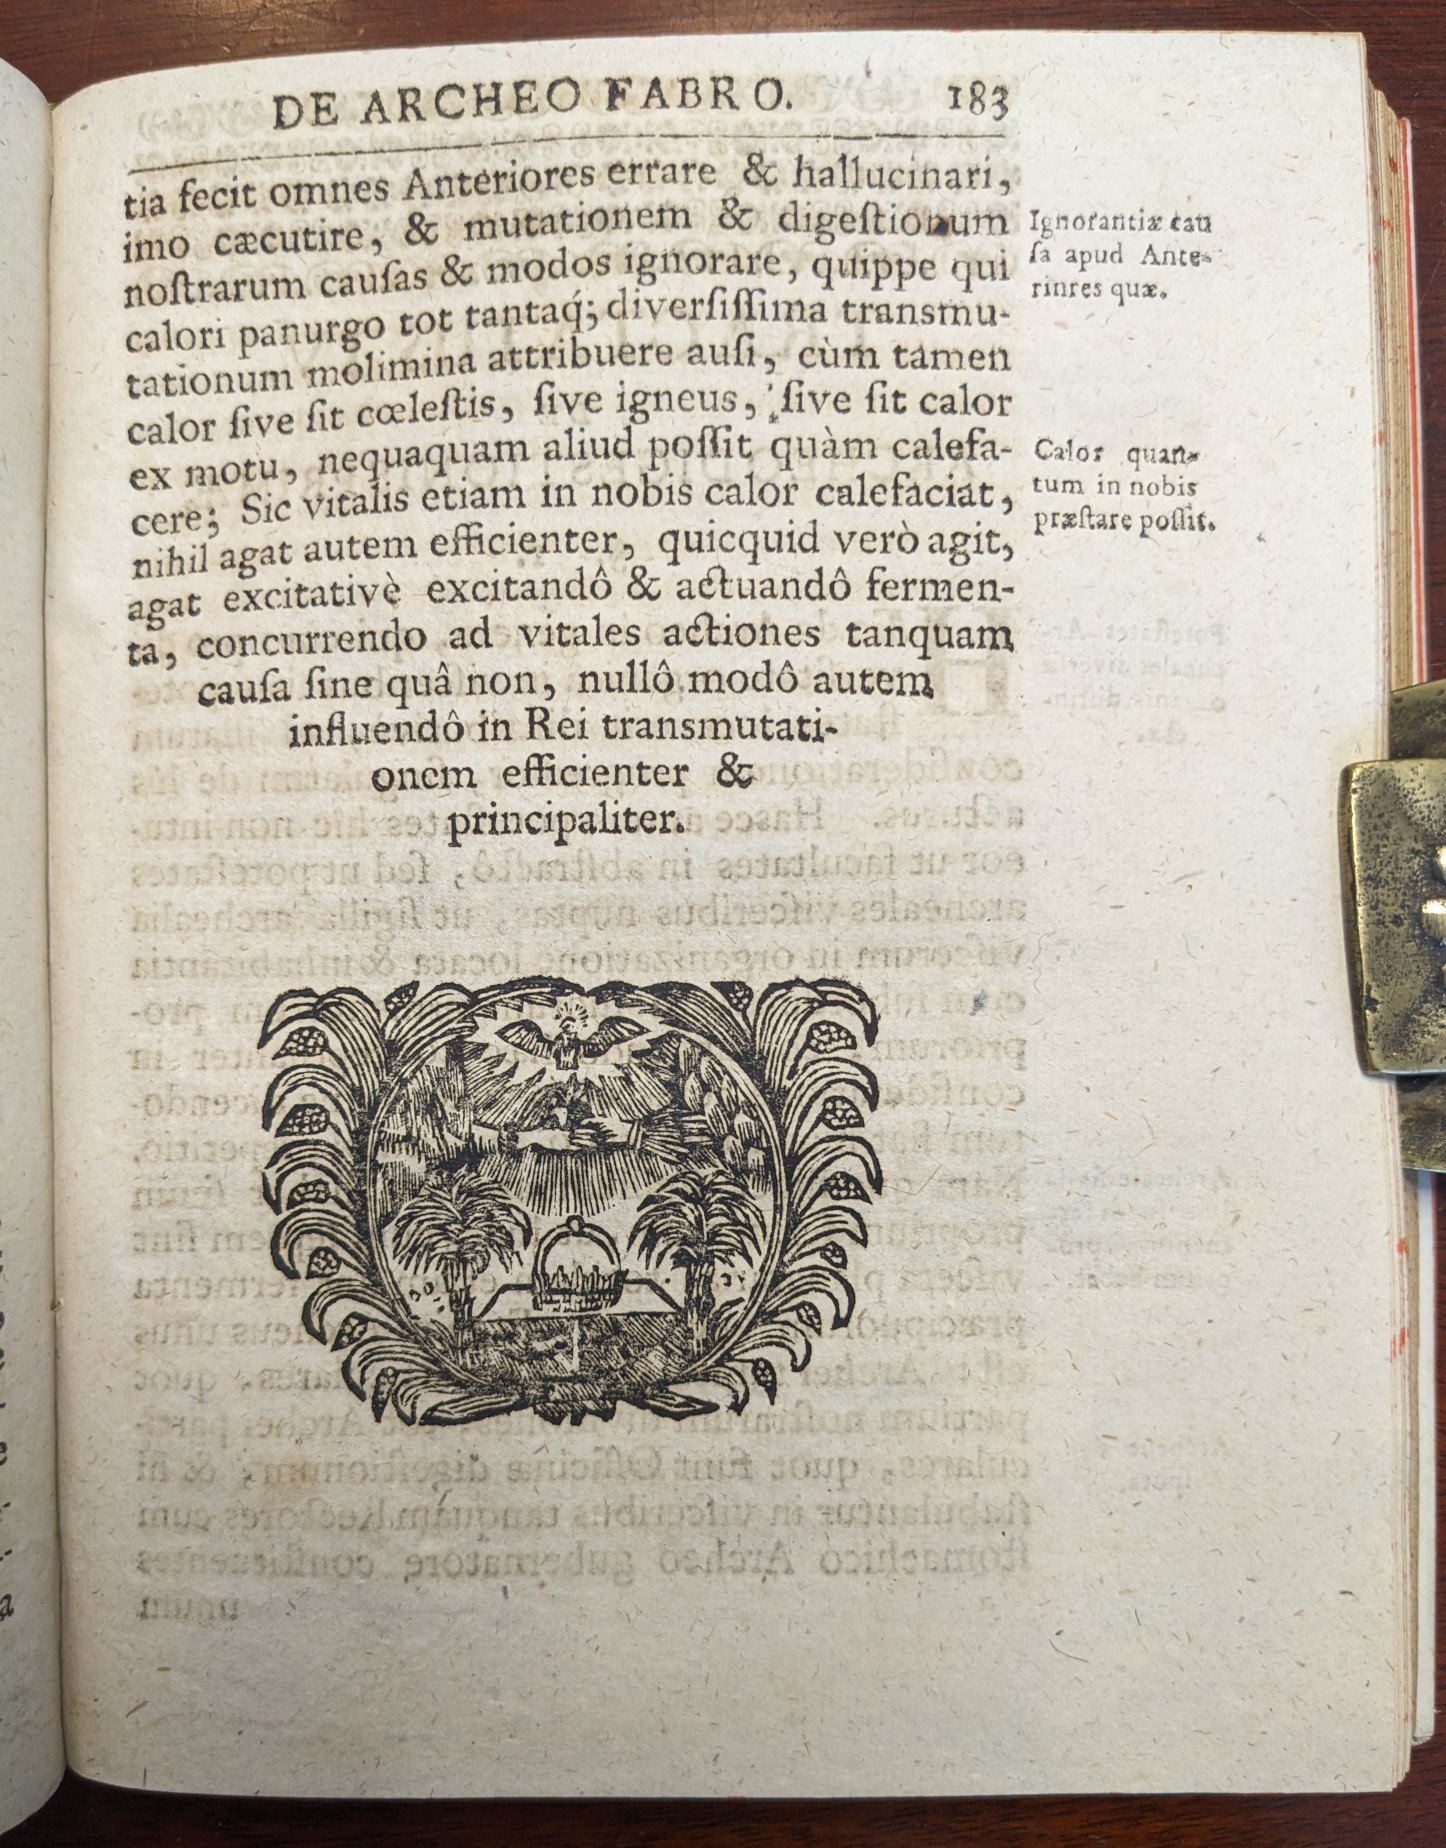 DE ARCHEO FABRO. 183
tia fecit omnes Anteriores errare & hallucinari,
imo cæcutire, & mutationem & digeſtionum
noſtrarum cauſas & modos ignorare, quippe qui
calori panurgo tot tantaq́; diverſiſſima transmu-
tationum molimina attribuere auſi, cùm tamen
calor ſive ſit cœleſtis, ſive igneus, ſive ſit calor
ex motu, nequaquam aliud poſſit quàm calefa-
cere; Sic vitalis etiam in nobis calor calefaciat,
nihil agat autem efficienter, quicquid verò agit,
agat excitativè excitandô & actuandô fermen-
ta, concurrendo ad vitales actiones tanquam
cauſa ſine quâ non, nullô modô autem
influendô in Rei transmutati-
onem efficienter &
principaliter.
Ignorantiæ cau
ſa apud Ante-
rinres quæ.
Calor quan-
tum in nobis
præſtare poſſit.